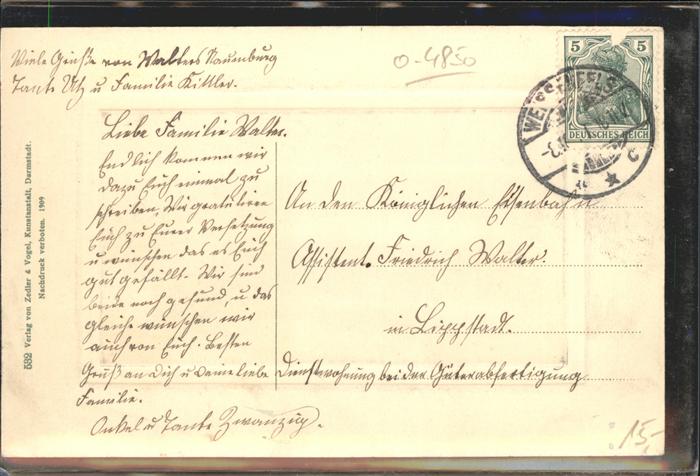 Viele Grüße von Walters Naumburg
Tante Utz u Familie Kittler.
Liebe Familie Walter.
Endlich kommen wir
dazu Euch einmal zu
schreiben, Wir gratulieren
Euch zu Eurer Versetzung
u wünschen das es Euch
gut gefällt. Wir sind
beide noch gesund, u das
gleiche wünschen wir
auch von Euch. Besten
Gruß an Dich u deine liebe
Familie.
Onkel u Tante Zwanzig.
o-4850
5 5
DEUTSCHES REICH
WEISSENFELS
c
An den Königlichen Eisenbahn
Assistent. Friedrich Walter.
in Lippstadt.
Dienstwohnung bei der Güterabfertigung
582 Verlag von Zedler & Vogel, Kunstanstalt, Darmstadt.
Nachdruck verboten. 1909
15,-